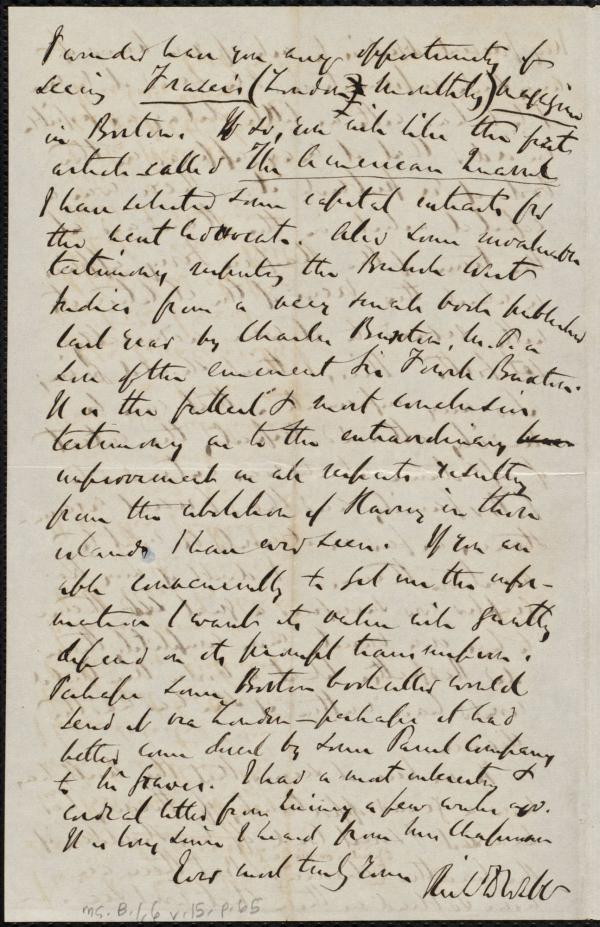 I wonder have you any opportunity of
seeing Fraser's (London Monthly) Magazine
in Boston. If so, you will like the first
article called The American Quarrel
I have selected some capital extracts for
the next Advocate. Also some invaluable
testimony respecting the British West
Indies from a very small book published
last year by Charles Buxton, M.P. a
son of the eminent Sir Fowell Buxton.
It is the fullest & most conclusive
testimony as to the extraordinary
improvement in all respects resulting
from the abolition of Slavery in those
islands I have ever seen. If you are
able conveniently to get me the infor-
mation I want its value will greatly
depend on its prompt transmission.
Perhaps some Boston bookseller would
send it via London - perhaps it had
better come direct by some Parcel Company
to Mr Graves. I had a most interesting &
cordial letter from a few weeks ago.
It is long since I heard from Mrs Chapman
Ever most truly Yours Rich D Webb
MS. B.1.6 v.15. p.65